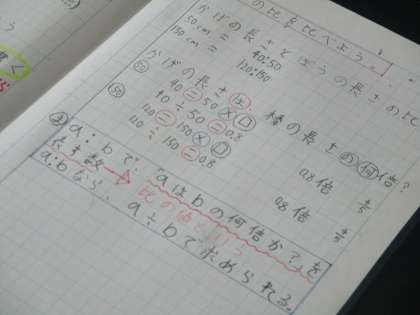 の比を比べよう。
かげの長さとぼうの長さの比
50cm = 40:50
150cm = 120:150
かげの長さは、棒の長さの何倍?
50 40=50×□
40÷50=0.8 0.8倍 4/5
150 120=150×□
120÷150=0.8 0.8倍 4/5
a:bで、aはbの何倍か?を
表す数 → 比の値
a:bなら、a÷bで求められる。